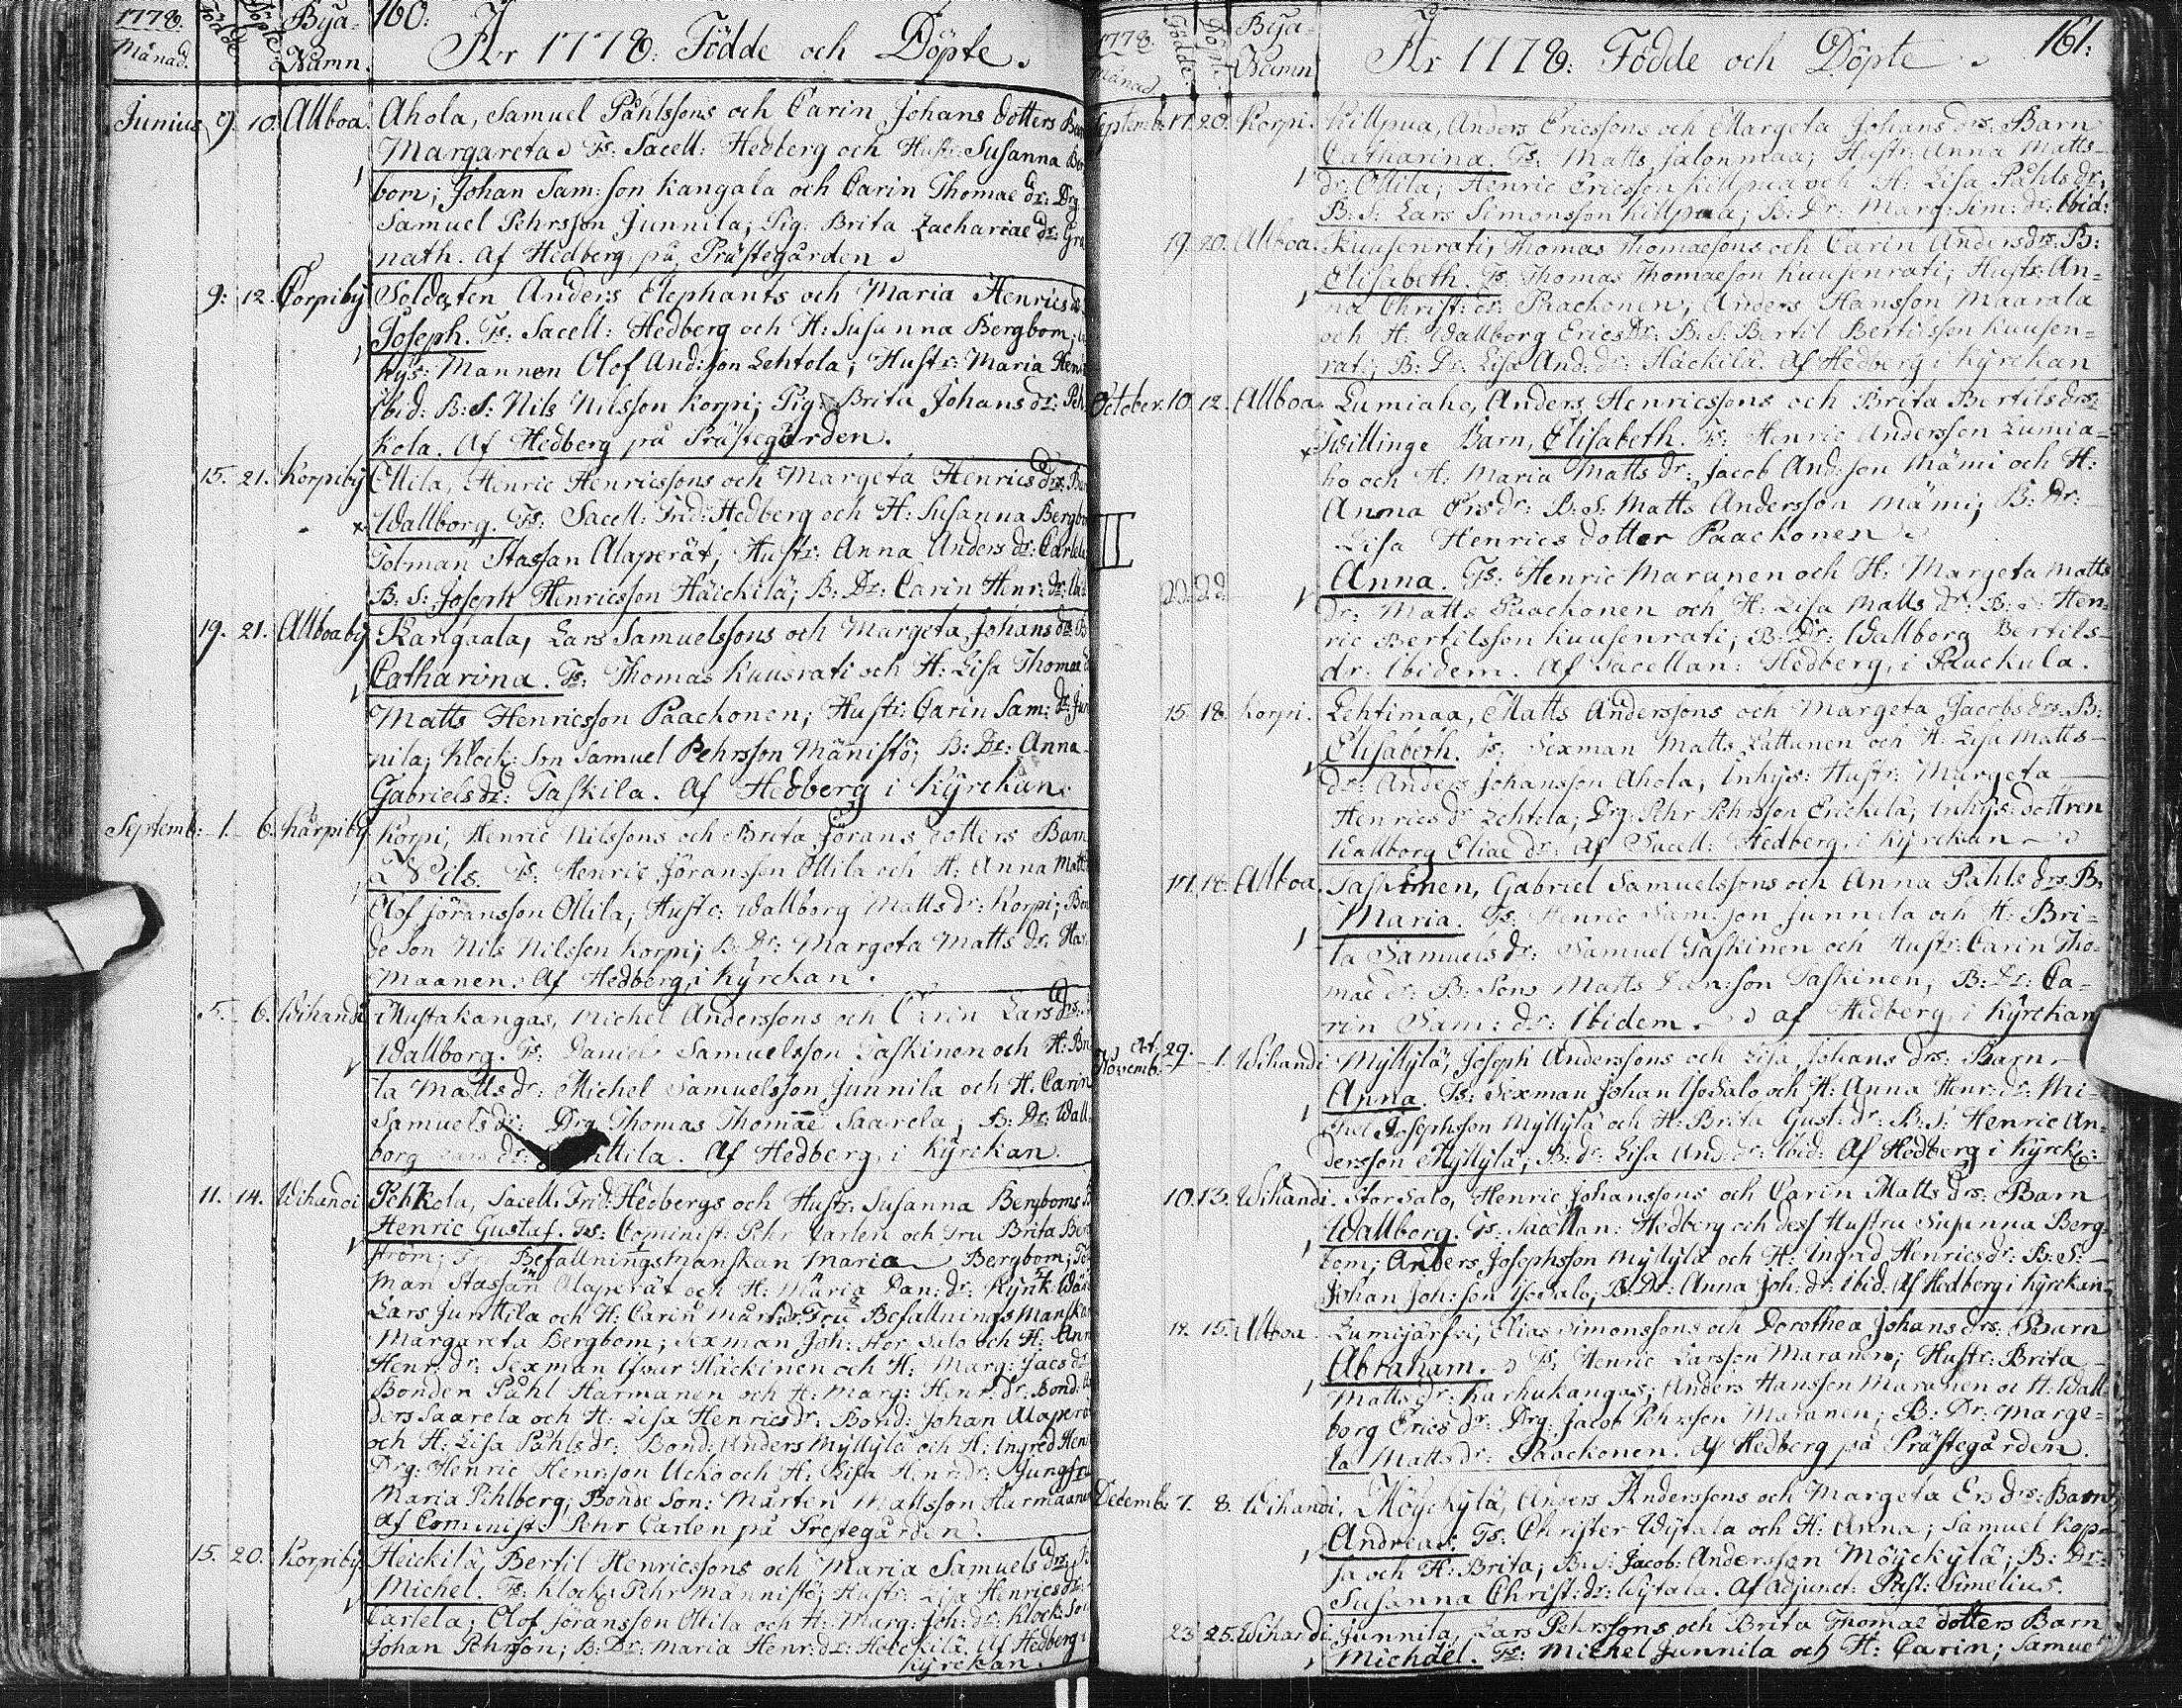 1778. Födde Döpte Bÿa- 160:
Månad. Namn. År 1778: Födde och Döpte.
Junius 9. 10. Allboa. Ahola, Samuel Påhlssons och Carin Johans dotters
Margareta. Ts: Sacell: Hedberg och Hustr: Susanna
bom; Johan Sam: son Kangala och Carin Thomae dr: Drg
Samuel Pehrsson Junnila; Pig: Brita Zachariae dr: Gra
nath. Af Hedberg på Prästegården.
9: 12. Corpibÿ Soldaten Anders Elephants och Maria Henrics
Joseph. Ts: Sacell: Hedberg och H: Susanna Bergbom;
hÿs: Mannen Olof And: son Lehtola; Hustr: Maria Hen
ibid: B: S: Nils Nilsson Korpi; Pig: Brita Johans dr: Peh
kola. Af Hedberg på Prästegården.
15. 21. Korpibÿ Ollila, Henric Henricssons och Margeta Henrics drs:
Wallborg. Ts: Sacell: Frid: Hedberg och H: Susanna Bergbo
Tolman Staffan Alaperät; Hustr: Anna Anders dr: Carlela
B: S: Joseph Henricsson Häickilä; B: Dr: Carin Henr: dr:
19. 21. Allboabÿ Kangaala, Lars Samuelssons och Margeta Johans dr: B
Catharina. Ts: Thomas Kuusrati och H: Lisa Thomae
Matts Henricsson Paackonen; Hustr: Carin Sam: dr: Jun
nila; Klock: Son Samuel Pehrsson Mänistö; B: Dr: Anna
Gabriels dr: Taskila. Af Hedberg i Kÿrckan.
Septemb: 1. 6. Kårpibÿ Korpi, Henric Nilssons och Brita Jörans dotters Barn
Nils. Ts: Henric Jöransson Ollila och H: Anna Matt
Olof Jöransson Ollila; Hustr: Wallborg Matts dr: Korpi; Bon
de Son Nils Nilsson Korpi; B: Dr: Margeta Matts dr: Har
maanen. Af Hedberg, i Kÿrckan.
5. 6. Wihandi Mustakangas, Michel Anderssons och Carin Lars drs:
Wallborg. Ts: Daniel Samuelsson Taskinen och H: Bri
ta Matts dr: Michel Samuelsson Junnila och H: Carin
Samuels dr: Drg Thomas Thomae Saarela; B: Dr: Wall
borg Lars dr: Af Hedberg, i Kÿrckan.
11. 14. Wihandi Pehkola, Sacell: Frid: Hedbergs och Hustr: Susanna Bergboms
Henric Gustaf. Ts: Cominist: Pehr Carlen och Fru Brita
ström; Befallningsmanskan Maria Bergbom;
man Staffan Alaperät och H: Maria Dan: dr:
Lars Junttila och H: Carin Mårts dr: Fru Befallnings Manskan
Margareta Bergbom; Sexman Joh: Stor Salo och H: Ann
Henr: dr: Sexman Ifvar Häckinen och H: Marg: Jacs dr
Bonden Påhl Harmanen och H: Marg: Henr: dr: Bond:
ders Saarela och H: Lisa Henrics dr: Bond: Johan Alaperä
och H: Lisa Påhls dr: Bond: Anders Mÿllÿlä och H: Ingred Hen
Drg: Henric Henr: son Ucko och H: Lisa Henr: dr: Jungfru
Maria Pihlberg; Bonde Son: Mårten Mattsson Harmaanen
af Cominist: Pehr Carlen på Prestegården.
15. 20. Korpibÿ Heickilä, Bertil Henricssons och Maria Samuels drs:
Michel. Ts: Klock: Pehr Männistö; Hustr: Lisa Henrics dr:
Carlela; Olof Jöransson Ollila och H: Marg: Joh: dr: Klock: Son
Johan Pehrson; B: Dr: Maria Henr: dr: Heickilä. Af Hedberg i
Kÿrckan.
1778. Födde. Döpte. Bÿa- 161.
Månad. Namn År 1778: Födde och Döpte.
Septemb. 17. 20. Korpi. Killpua, Anders Ericssons och Margeta Johans drs: Barn
Catharina. Ts: Matts Salonmaa; Hustr: Anna Matts-
dr: Ollila; Henric Ericsson Killpua och H: Lisa Påhls dr;
B: S: Lars Simonsson Killpua; B: Dr: Marg: Sim: dr: Ibid:
19. 20. Allboa. Kuusenrati, Thomas Thomaesons och Carin Anders drs: B:
Elisabeth. Ts: Thomas Thomaeson Kuusenrati; Hustr: An-
na Christ: dr: Paackonen; Anders Hansson Maarala
och H: Wallborg Erics dr: B: S: Bertil Bertilsson Kuusen-
rati; B: Dr: Lisa And: dr: Häckilä. Af Hedberg i Kÿrckan
October. 10. 12. Allboa. Lumiaho, Anders Henricssons och Brita Bertils drs:
Twillinge Barn, Elisabeth. Ts: Henric Andersson Lumia-
ho och H: Maria Matts dr: Jacob And: son Mämi och H:
Anna Ers dr: B: S: Matts Andersson Mämi; B: Dr:
Lisa Henrics dotter Paackonen.
II
22. 22. Anna. Ts: Henric Maranen och H: Margeta Matts
dr: Matts Paackonen och H: Lisa Matts dr: B: S: Hen-
ric Bertilsson Kuusenrati; B: Dr: Wallborg Bertils-
dr: Ibidem. Af Sacellan: Hedberg, i Pauckula.
15. 18. Korpi. Lehtimaa, Matts Anderssons och Margeta Jacobs drs: B:
Elisabeth. Ts: Sexman Matts Lattunen och H: Lisa Matts-
dr: Anders Johansson Ahola; Inhÿs: Hustr: Margeta
Henrics dr Lehtela; Drg: Pehr Pehrsson Erickila; Inhÿs: dottren
Wallborg Eliae dr: Af Sacell: Hedberg, i Kÿrckan
17. 18. Allboa. Taskinen, Gabriel Samuelssons och Anna Påhls drs: B:
Maria. Ts: Henric Sam: son Junnila och H: Bri-
ta Samuels dr: Samuel Taskinen och Hustr: Carin Tho-
mae dr: B: Son Matts son Taskinen; B: Dr: Ca-
rin Sam: dr: Ibidem. af Hedberg, i Kÿrckan
Oct. 29.
Novemb: 1. Wihandi Mÿllÿlä, Joseph Anderssons och Lisa Johans drs: Barn
Anna. Ts: Sexman Johan IsoSalo och H: Anna Henr: dr: Mi-
chel Josephsson Mÿllÿlä och H: Brita Gust: dr: B: S: Henric An-
dersson Mÿllÿlä; B: dr: Lisa And: dr: Ibid: Af Hedberg i Kÿrck:
10. 13. Wihandi. Stor Salo, Henric Johanssons och Carin Matts drs: Barn
Wallborg. Ts: Sacellan: Hedberg och dess Hustru Susanna Berg-
bom; Anders Josephsson Mÿllÿlä och H: Ingrid Henrics dr: B: S:
Johan Joh: son IsoSalo; B: Dr: Anna Joh: dr: Ibid: Af Hedberg i Kÿrckan
12. 15. Allboa Lumijärfvi, Elias Simonssons och Dorothea Johans drs: Barn
Abraham. Ts: Henric Larsson Maranen; Hustr: Brita
Matts dr: Karhukangas; Anders Hansson Maranen oc H: Wall-
borg Erics dr: Drg: Jacob Pehrsson Maranen; B: Dr: Marge-
ta Matts dr: Paackonen. Af Hedberg på Prästegården.
Decemb: 7. 8. Wihandi. Möÿckÿlä, Anders Anderssons och Margeta Ers drs: Barn
Andreas. Ts: Christer Wÿtala och H: Anna; Samuel Kop-
sa och H: Brita; B: S: Jacob: Andersson Möÿckÿlä; B: Dr:
Susanna Christ: dr: Wÿtala. Af Adjunct: Past: Simelius.
23. 25. Wihandi Junnila, Lars Pehrssons och Brita Thomae dotters Barn
Michael. Ts: Michel Junnila och H: Carin; Samuel